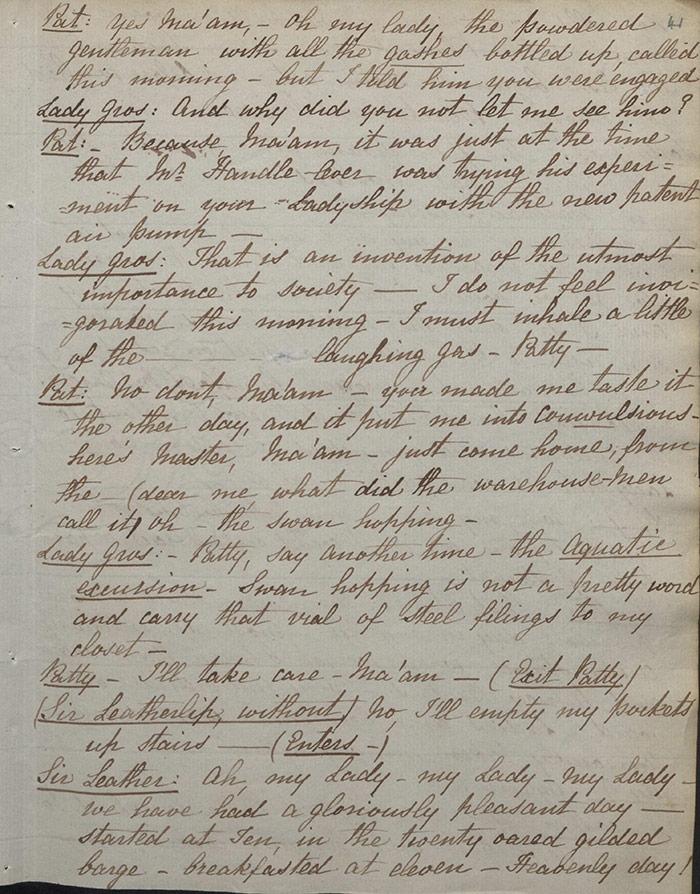 41
Pat: yes Ma'am, - Oh my lady, the powdered
gentleman with all the gashes bottled up, called
this morning - but I told him you were engaged
Lady Gros: And why did you not let me see him?
Pat: - Because, Ma'am, it was just at the time
that Mr. Handle-lever was trying his experi=
=ment on your =Ladyship with the new patent
air pump —
Lady Gros: That is an invention of the utmost
importance to society — I do not feel invi=
=gorated this morning - I must inhale a little
of the ——— laughing gas - Patty —
Pat: No dont, Ma'am - you made me taste it
the other day, and it put me into convulsions -
here's Master, Ma'am - just come home, from
the - (dear me, what did the warehouse-men
call it) oh - the swan hopping -
Lady Gros: - Patty, say another time - the Aquatic
excursion - Swan hopping is not a pretty word
and carry that vial of steel filings to my
closet -
Patty - I'll take care - Ma'am — (Exit Patty)
(Sir Leatherlip, without) No, I'll empty my pockets
up stairs — (Enters -)
Sir Leather: Ah, my Lady - my Lady - my Lady -
we have had a gloriously pleasant day —
started at Ten, in the twenty oared gilded
barge - breakfasted at eleven - Heavenly day!